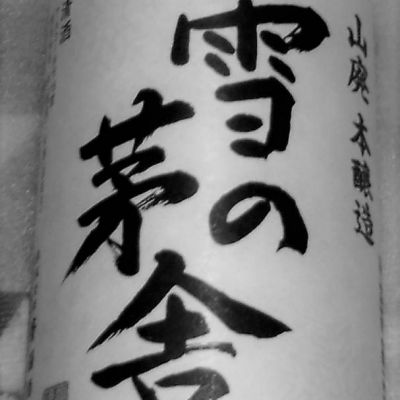 山廃本醸造
雪の
茅舎
清酒